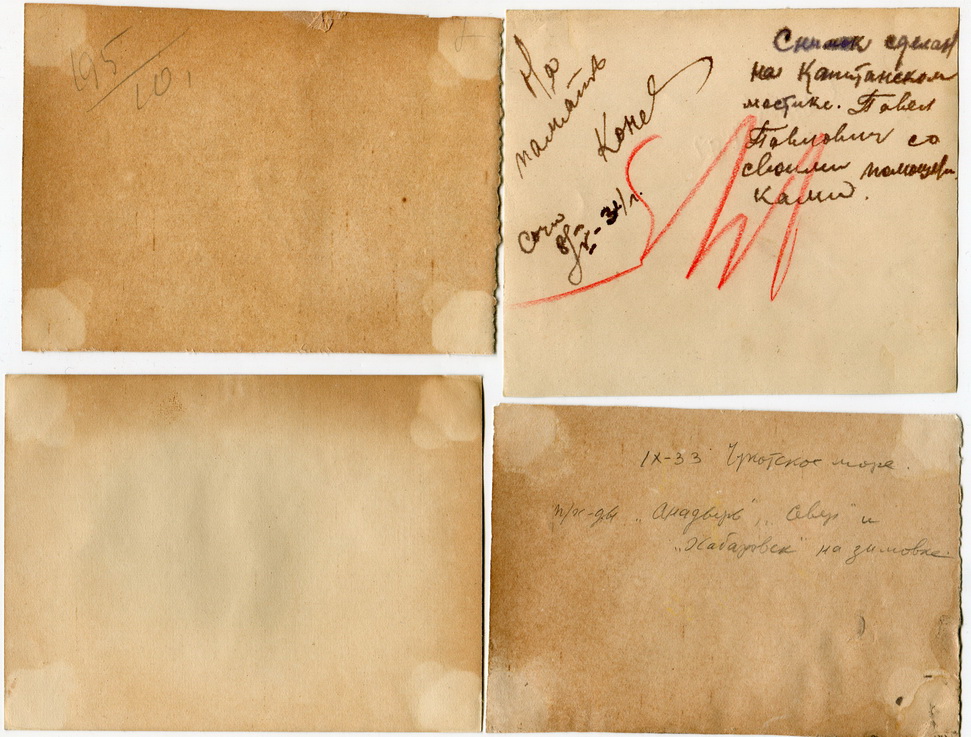 195
10.
На
память
Сочи
Снимок сделан
на Капитанском
мостике. Павел
Павлович со
своими помощни-
ками.
IX-33 Чукотское море.
п/х-ды "Анадырь", "Север" и
"Хабаровск" на зимовке.